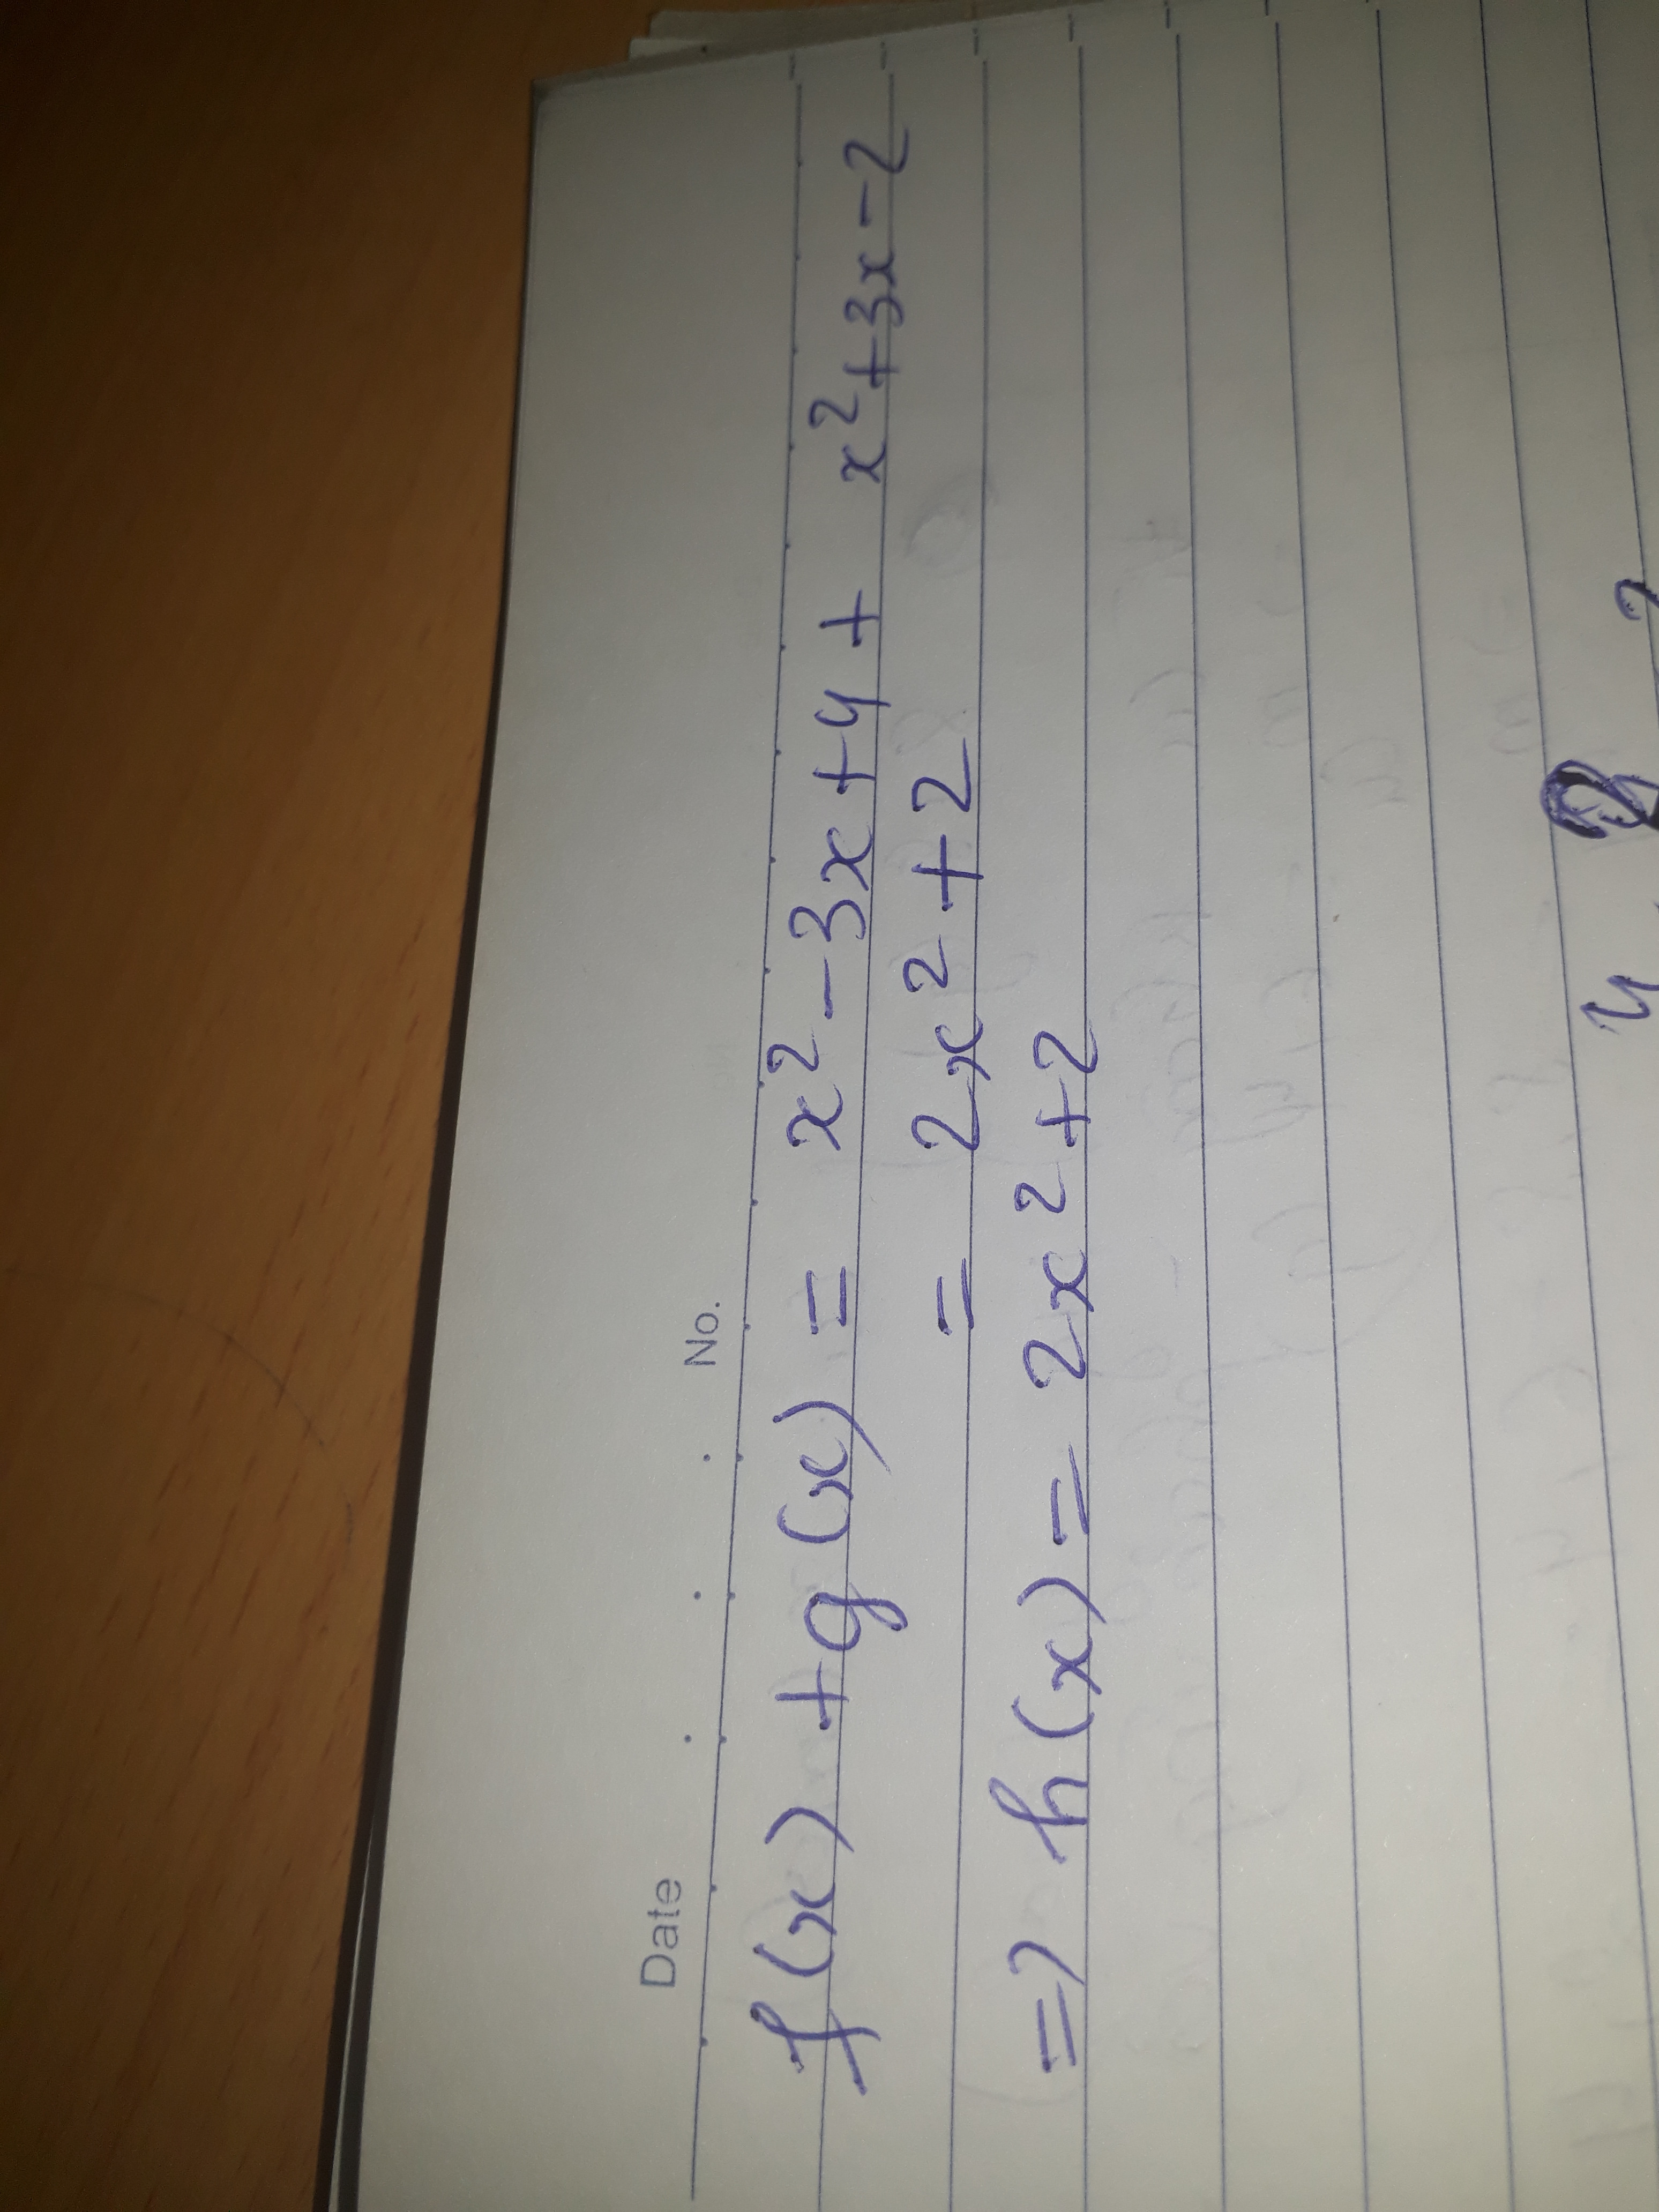 Date No.
f(x) + g(x) = x² - 3x + 4 + x² + 3x - 2
= 2x² + 2
=> h(x) = 2x² + 2